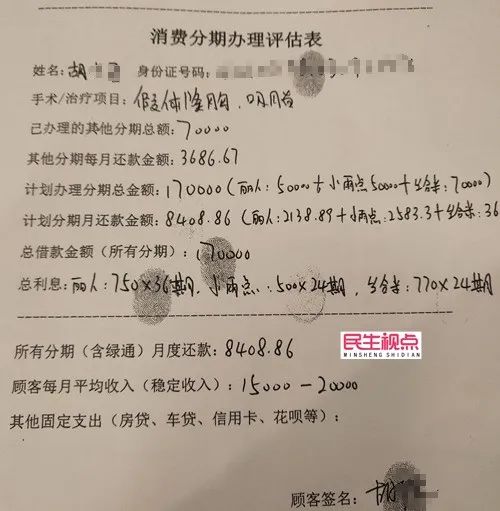 消费分期办理评估表
姓名：胡 身份证号码：
手术/治疗项目：假体隆胸、吸脂
已办理的其他分期总额：70000
其他分期每月还款金额：3686.67
计划办理分期总金额：170000（丽人：50000＋小雨点50000＋ ：70000）
计划分期月还款金额：8408.86（丽人：2138.89＋小雨点：2583.3＋ ：36
总借款金额（所有分期）：170000
总利息：丽人：750×36期，小雨点：500×24期， ：770×24期
民生视点
MINSHENG SHIDIAN
所有分期（含绿通）月度还款：8408.86
顾客每月平均收入（稳定收入）：15000－20000
其他固定支出（房贷、车贷、信用卡、花呗等）：
顾客签名：胡